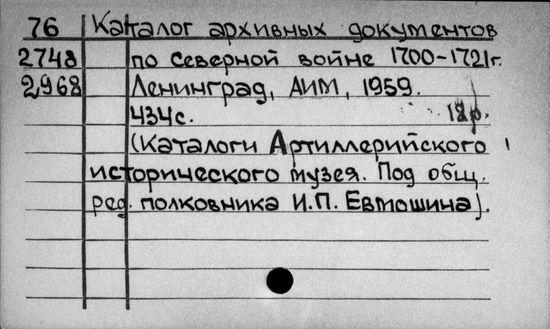 76 Каталог архивных документов
2748 по Северной войне 1700-1721г.
2968 Ленинград, АИМ, 1959.
434с. 18р.
(Каталоги Артиллерийского
исторического музея. Под общ.
ред. полковника И.П. Евтюшина).